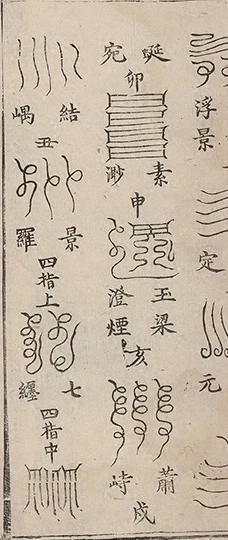 浮景
定
元
蜒宛
卯
素渺
申
玉梁澄煙
亥
蕭峙
戌
結嵎
丑
景羅
四指上
七纏
四指中